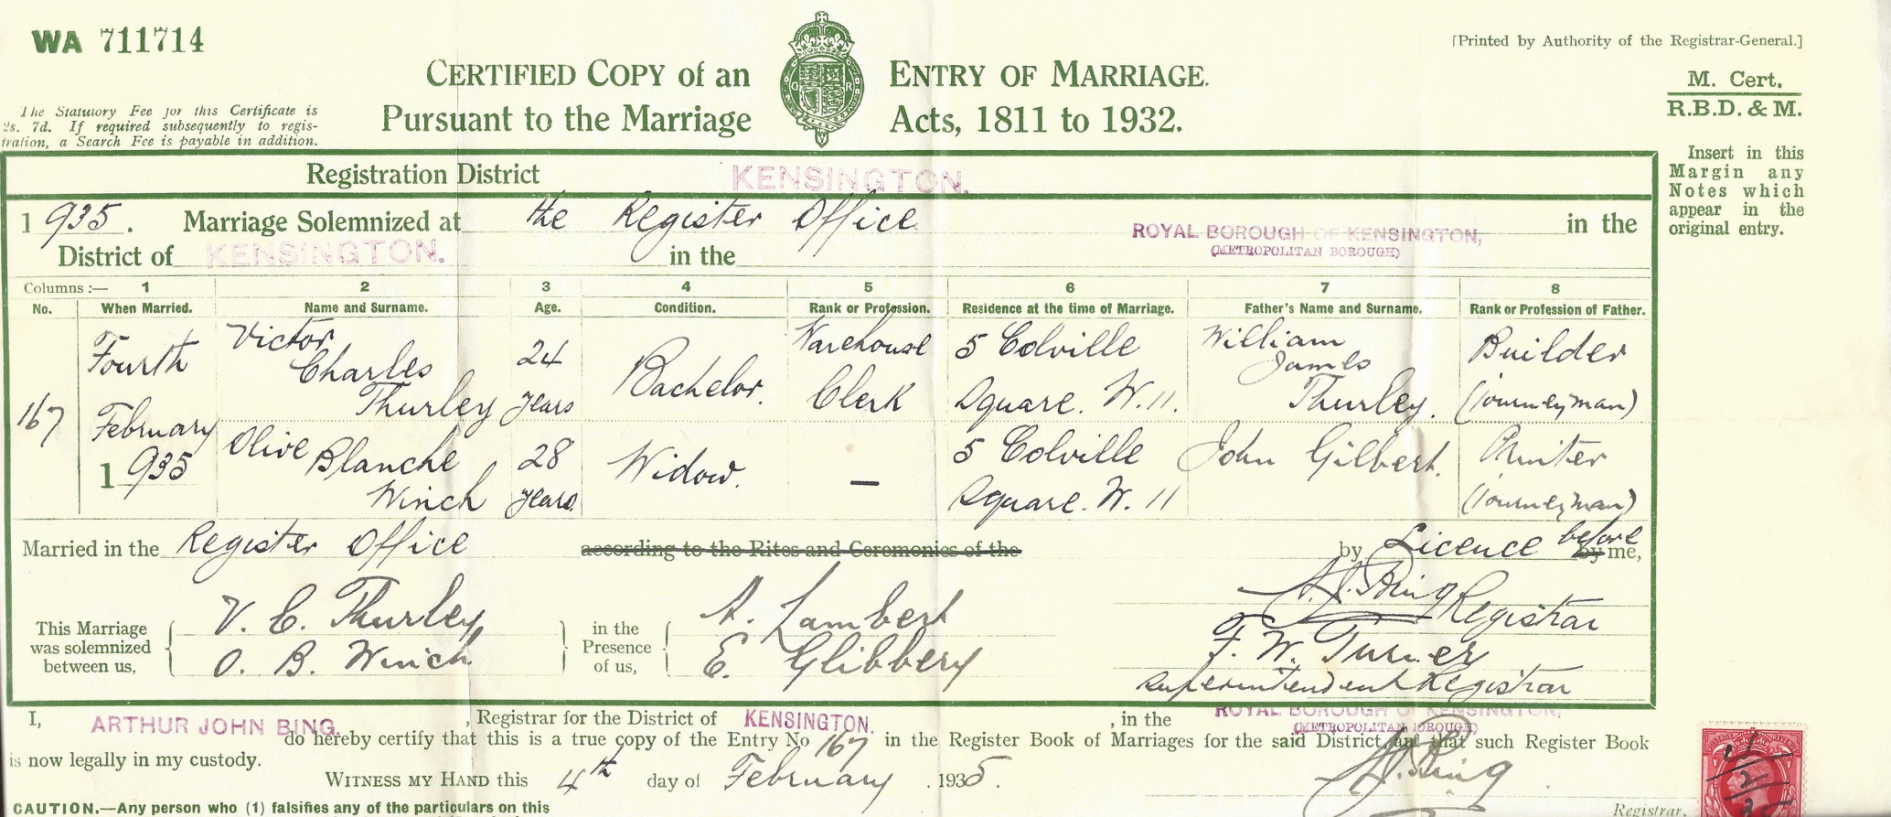 WA 711714
[Printed by Authority of the Registrar-General.]
CERTIFIED COPY of an ENTRY OF MARRIAGE.
Pursuant to the Marriage Acts, 1811 to 1932.
M. Cert.
R.B.D. & M.
The Statutory Fee for this Certificate is
2s. 7d. If required subsequently to regis-
tration, a Search Fee is payable in addition.
Insert in this
Margin any
Notes which
appear in the
original entry.
Registration District KENSINGTON.
1935. Marriage Solemnized at the Register Office in the
ROYAL BOROUGH OF KENSINGTON,
(METROPOLITAN BOROUGH)
District of KENSINGTON. in the
Columns :— 1 2 3 4 5 6 7 8
No. When Married. Name and Surname. Age. Condition. Rank or Profession. Residence at the time of Marriage. Father's Name and Surname. Rank or Profession of Father.
167
Fourth
February
1935
Victor
Charles
Thurley
24
years
Bachelor.
Warehouse
Clerk
5 Colville
Square. W.11.
William
James
Thurley.
Builder
(Journeyman)
Olive Blanche
Winch
28
years
Widow.
—
5 Colville
Square. W. 11
John Gilbert.
(Journeyman)
Married in the Register Office according to the Rites and Ceremonies of the by Licence before by me,
This Marriage
was solemnized
between us,
V. C. Thurley
O. B. Winch
in the
Presence
of us,
A. Lambert
E. Glibbery
A. J. Bing Registrar
F. W. Turner
Superintendent Registrar
I, ARTHUR JOHN BING. , Registrar for the District of KENSINGTON. , in the ROYAL BOROUGH OF KENSINGTON,
(METROPOLITAN BOROUGH)
do hereby certify that this is a true copy of the Entry No 167 in the Register Book of Marriages for the said District, and that such Register Book
is now legally in my custody.
WITNESS MY HAND this 4th day of February . 1935.
A. J. Bing
Registrar.
CAUTION.—Any person who (1) falsifies any of the particulars on this